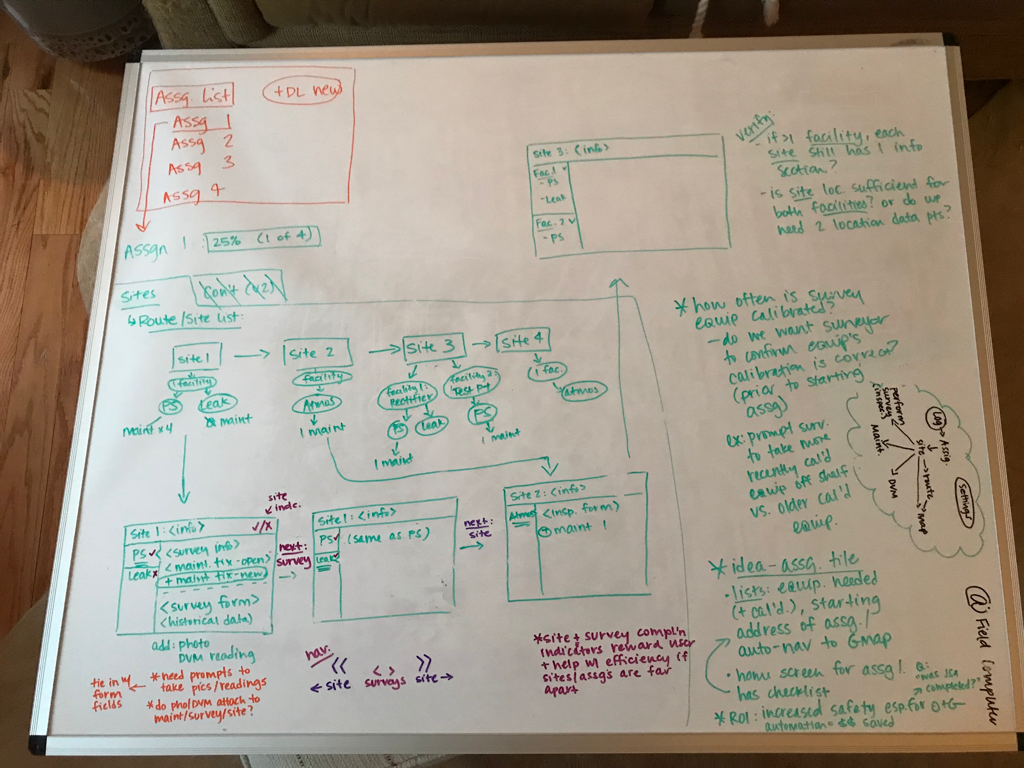 Assg. List
+DL new
Assg 1
Assg 2
Assg 3
Assg 4
Assgn 1
25% (1 of 4)
Sites
↳ Route/Site List:
Site 1 → Site 2 → Site 3 → Site 4
1 facility
PS
Leak
maint x 4
maint
facility
Atmos
1 maint
facility 1:
Rectifier
PS
Leak
1 maint
facility 2:
Test Pt
PS
1 maint
1 fac.
Atmos
Site 3: <info>
Fac. 1 ˅
- PS
- Leak
Fac. 2 ˅
- PS
verify:
- if >1 facility, each
site still has 1 info
section?
- is site loc. sufficient for
both facilities? or do we
need 2 location data pts?
* how often is survey
equip calibrated?
- do we want surveyor
to confirm equip's
calibration is correct?
(prior to starting
assg)
ex: prompt surv.
to take more
recently cal'd
equip off shelf
vs. older cal'd
equip.
perform
survey
(inspec.)
Maint.
DVM
Log → Assig.
site
→ route
→ map
Settings
site
indc.
Site 1: <info> ✓/X
PS ✓
Leak x
<survey info>
<maint. tix-open>
+ maint tix-new
<survey form>
<historical data>
next:
survey
→
Site 1: <info>
PS ✓
Leak
(same as PS)
next:
site
→
Site 2: <info>
Atmos
<insp. form>
+ maint 1
add: photo
DVM reading
tie in w/
form
fields
* need prompts to
take pics/readings
* do pho/DVM attach to
maint/survey/site?
nav:
<< < > >>
← site surveys site →
* site + survey compl'n
indicators reward user
+ help w/ efficiency if
sites/assg's are far
apart
* idea - assg. tile
• lists: equip. needed
(+ cal'd.), starting
address of assg. /
auto-nav to GMap
• home screen for assg 1.
has checklist
Q:
"was JSA
completed?"
* ROI: increased safety esp. for O+G
automation = $$ saved
@ Field Computer